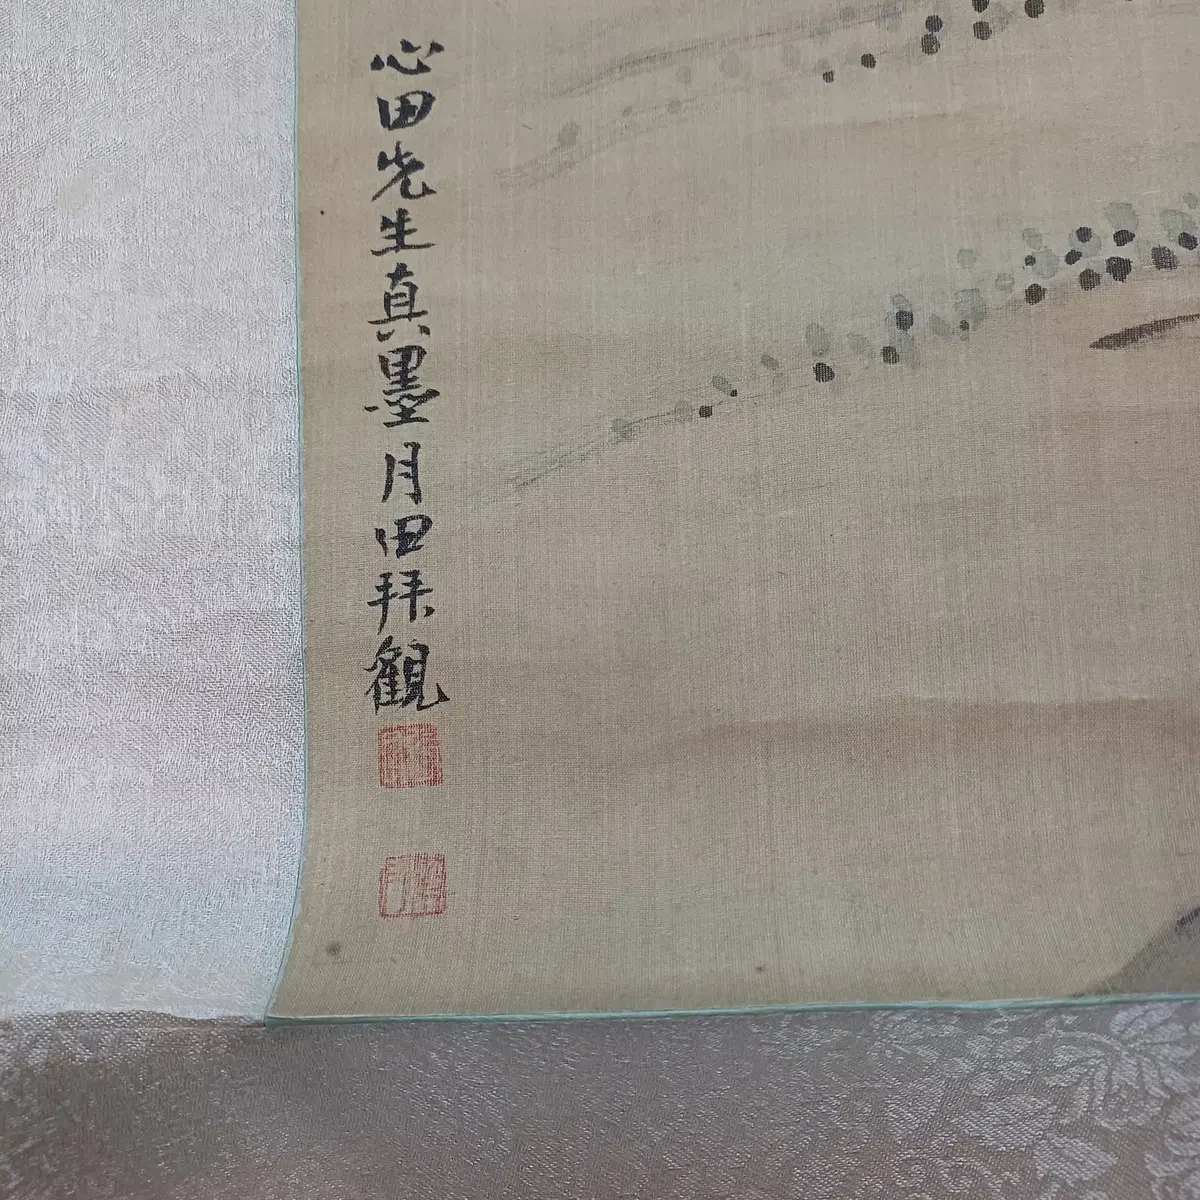 心田先生真墨月田拜觀